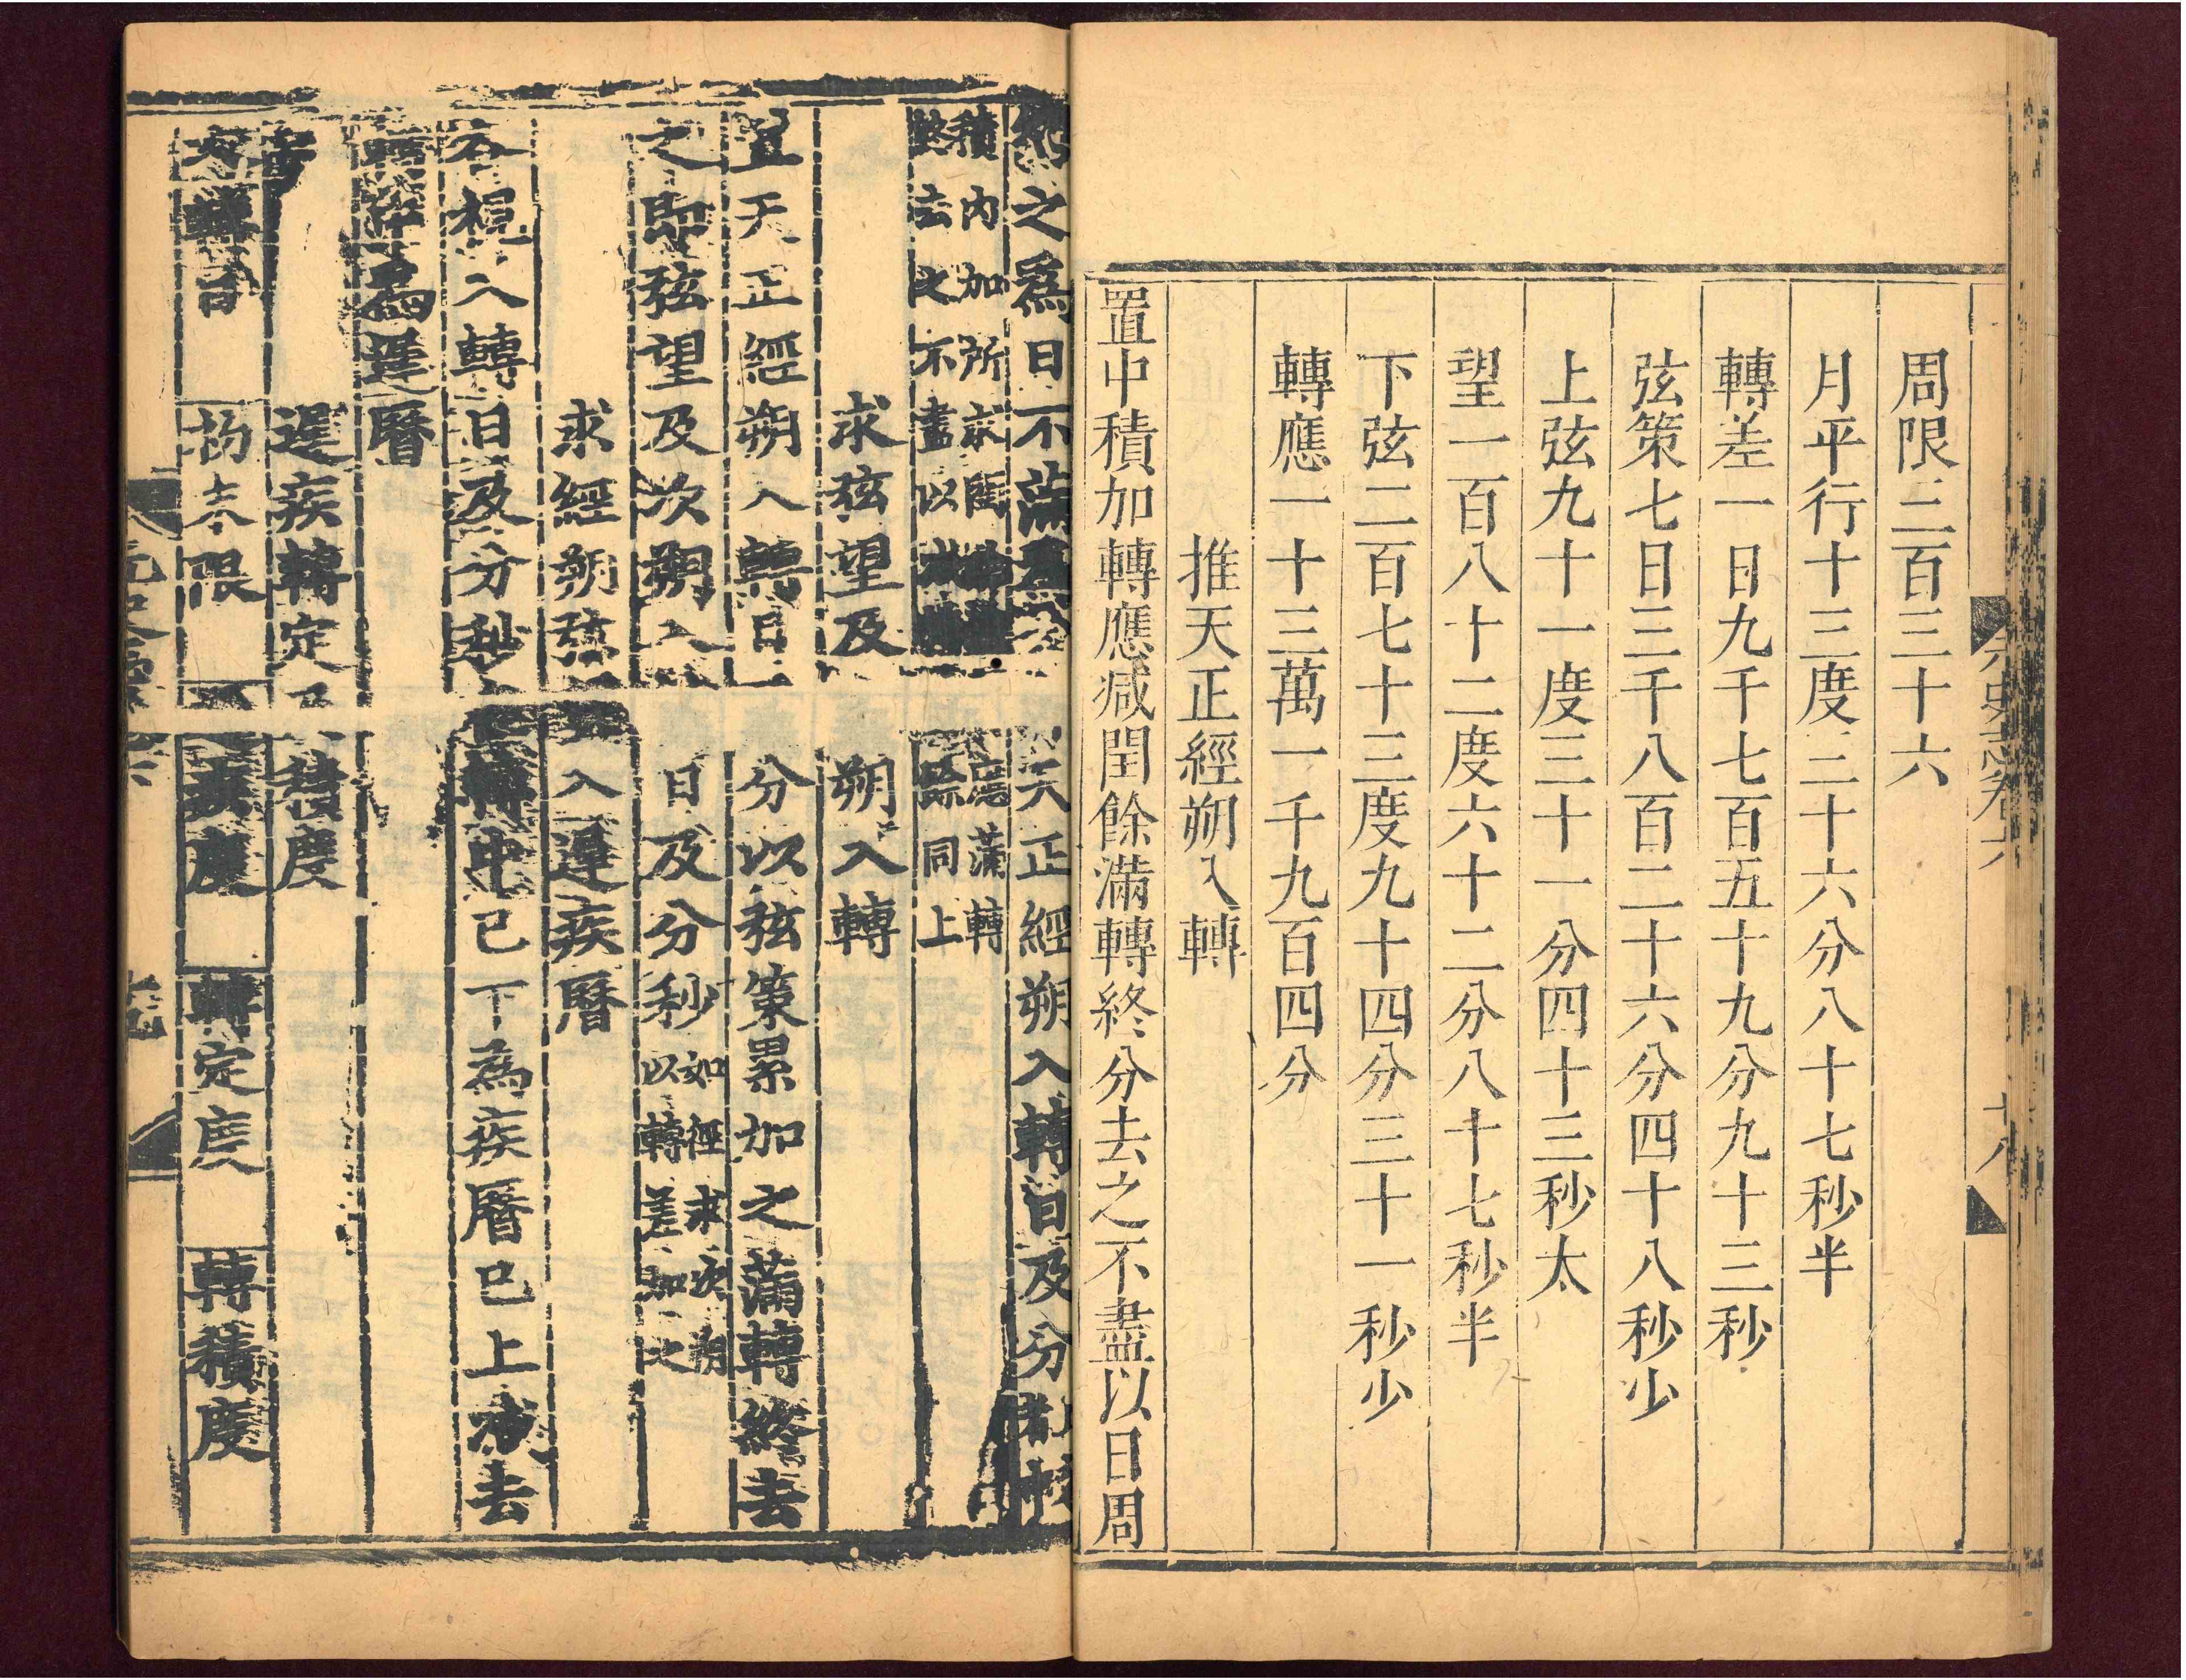 周限三百三十六
月平行十三度三十六分八十七秒半
轉差一日九千七百五十九分九十三秒
弦策七日三千八百二十六分四十八秒少
上弦九十一度三十一分四十三秒太
望一百八十二度六十二分八十七秒半
下弦二百七十三度九十四分三十一秒少
轉應一十三萬一千九百四分
推天正經朔入轉
置中積加轉應減閏餘滿轉終分去之不盡以日周
約之爲日不滿爲分 天正經朔入轉日及分
積內加所求閏 應滿轉
終去之不盡以 餘同上
求弦望及 朔入轉
置天正經朔入轉日 分以弦策累加之滿轉終去
之即弦望及次朔入 日及分秒 如徑求次朔
以轉差加之
求經朔弦 入遲疾曆
各視入轉日及分秒 轉中已下爲疾曆已上减去
轉中爲遲曆
遲疾轉定 積度
入轉日 初末限 疾度 轉定度 轉積度
元史志卷六 十八